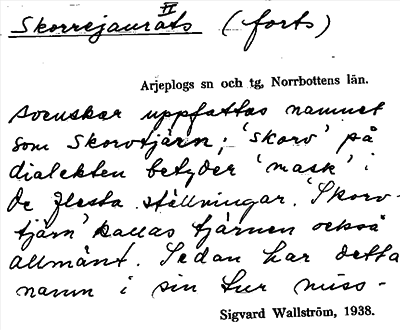 II
Skorrejauråts (forts)
Arjeplogs sn och tg, Norrbottens län.
svenskar uppfattas namnet
som Skorvtjärn; 'skorv' på
dialekten betyder 'mask' i
de flesta ställningar. 'Skorv-
tjärn' kallas tjärnen också
allmänt. Sedan har detta
namn i sin tur miss-
Sigvard Wallström, 1938.